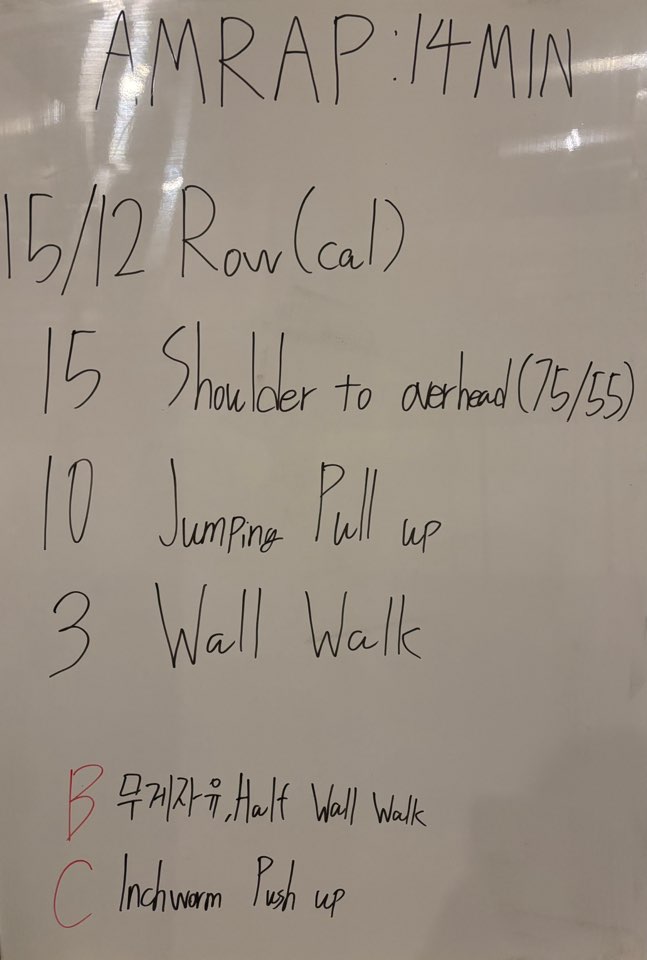 AMRAP : 14 MIN
15/12 Row (cal)
15 Shoulder to overhead (75/55)
10 Jumping Pull up
3 Wall Walk
B 무게자유, Half Wall Walk
C Inchworm Push up